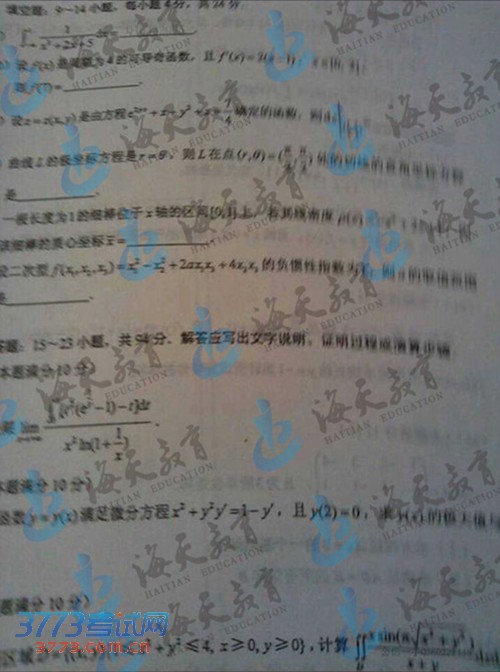 填空题：9～14小题，每小题4分，共24分
∫ 1/(x²+2x+5) dx=
设f(x)是周期为4的可导奇函数，且f'(x)=2(x-1)，x∈[0,2]，
则f(7)=
设z=z(x,y)是由方程e^{2yz}+x+y²+z=7/4确定的函数，则dz|
曲线L的极坐标方程是r=θ，则L在点(r,θ)=(π/2,π/2)处的切线的直角坐标方程
是
一根长度为1的细棒位于x轴的区间[0,1]上，若其线密度
该细棒的质心坐标x̄=
设二次型f(x₁,x₂,x₃)=x₁²-x₂²+2ax₁x₃+4x₂x₃的负惯性指数为1，则a的取值范围
是
答题：15～23小题，共94分．解答应写出文字说明、证明过程或演算步骤
本题满分10分）
lim ∫[t²(e^{1/t}-1)-t]dt / x²ln(1+1/x)．
本题满分10分）
函数y=y(x)满足微分方程x²+y²y'=1-y'，且y(2)=0，求y(x)的极大值与
题满分10分）
+y²≤4, x≥0, y≥0}，计算∬ x sin(π√(x²+y²))/(x+y)
海天教育
HAITIAN EDUCATION
3773考试网
www.3773.com.cn